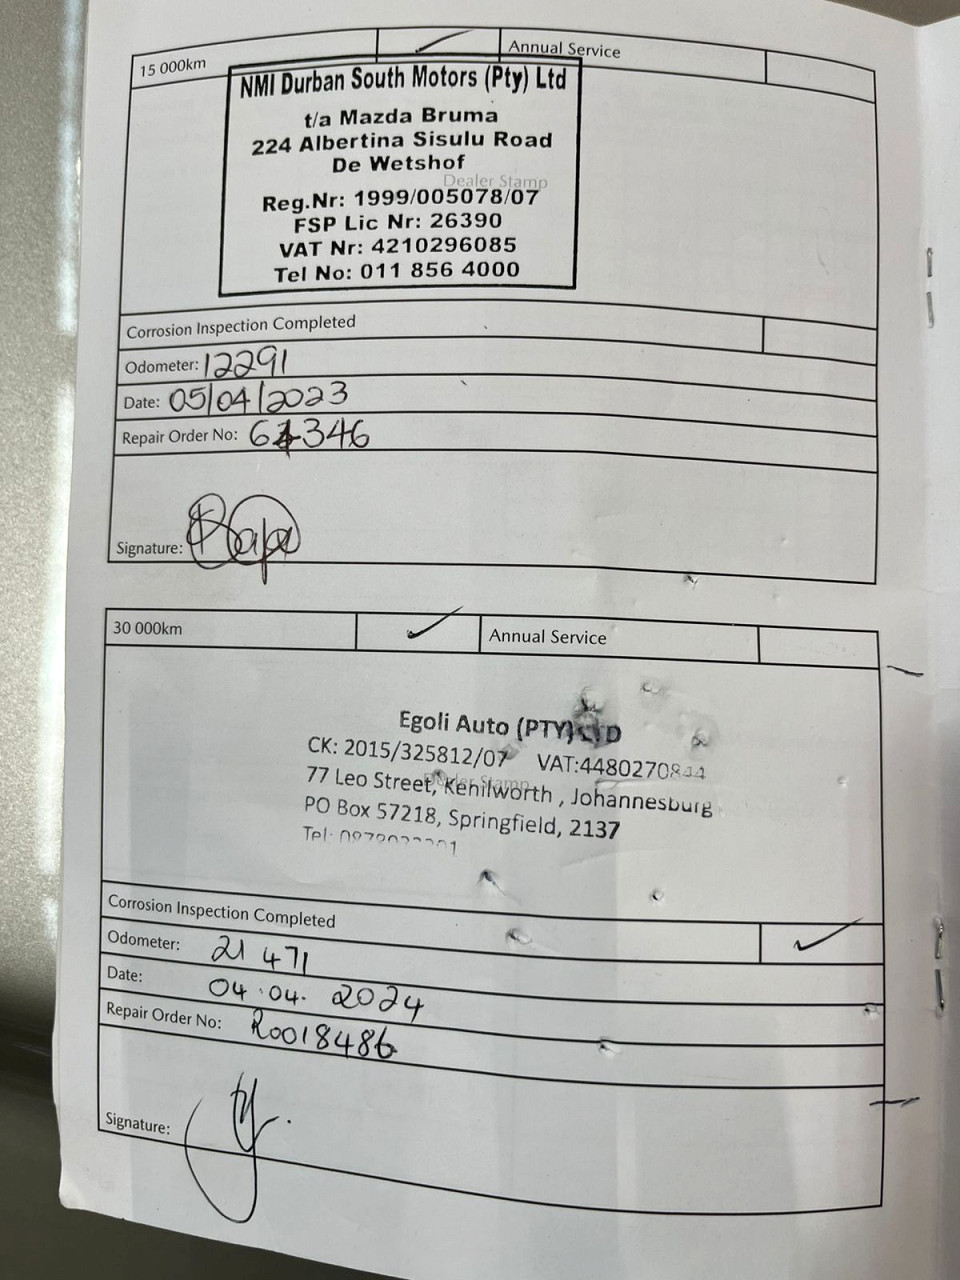 15 000km Annual Service
NMI Durban South Motors (Pty) Ltd
t/a Mazda Bruma
224 Albertina Sisulu Road
De Wetshof
Dealer Stamp
Reg.Nr: 1999/005078/07
FSP Lic Nr: 26390
VAT Nr: 4210296085
Tel No: 011 856 4000
Corrosion Inspection Completed
Odometer: 12291
Date: 05/04/2023
Repair Order No:
Signature:
30 000km Annual Service
Egoli Auto (PTY) LTD
CK: 2015/325812/07
77 Leo Street, Kenilworth , Johannesburg
Dealer Stamp
PO Box 57218, Springfield, 2137
Tel:
Corrosion Inspection Completed
Odometer: 21 471
Date: 04.04. 2024
Repair Order No: R0018486
Signature: